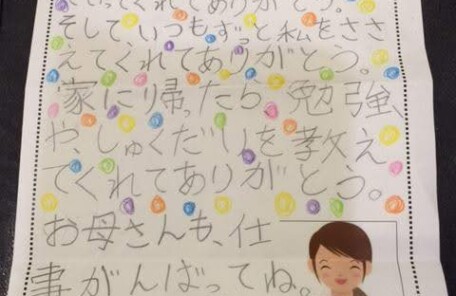 ていってくれてありがとう。
そしていつもずっと私をささ
えてくれてありがとう。
家に帰ったら、勉強、
や、しゅくだいを教え
てくれてありがとう。
お母さんも、仕
事がんばってね。